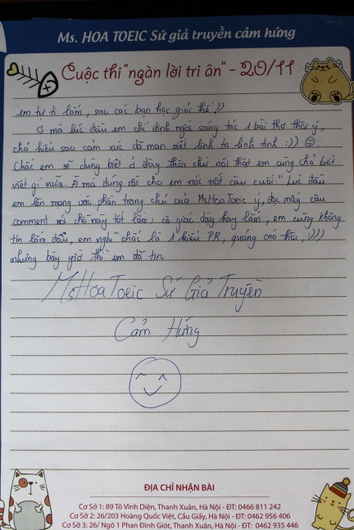 Ms. HOA TOEIC Sứ giả truyền cảm hứng
Cuộc thi "ngàn lời tri ân" - 20/11
em tự ti lắm, sao các bạn học giỏi thế!))
Ờ mà lúc đầu em chỉ định ngồi sáng tác 1 bài thơ thôi ý,
chả hiểu sao cảm xúc dồi man viết linh ta linh tinh :))
Chắc em sẽ dừng bút ở đây thôi chứ nói thật em cũng chả biết
viết gì nữa. À mà đừng rồi cho em nói một câu cuối! Lúc đầu
em lên mạng vào phần trang chủ của MsHoaToeic ý, đọc mấy câu
comment nói chị này tốt lắm, cô giáo dạy hay lắm, em cũng không
tin lắm đâu, em nghĩ chắc là 1 kiểu PR, quảng cáo thôi, :)))
nhưng bây giờ thì em đã tin.
MsHoaToeic Sứ Giả Truyền
Cảm Hứng
ĐỊA CHỈ NHẬN BÀI
Cơ Sở 1: 89 Tô Vĩnh Diện, Thanh Xuân, Hà Nội - ĐT: 0466 811 242
Cơ Sở 2: 26/203 Hoàng Quốc Việt, Cầu Giấy, Hà Nội - ĐT: 0462 956 406
Cơ Sở 3: 26/ Ngõ 1 Phan Đình Giót, Thanh Xuân, Hà Nội - ĐT: 0462 935 446